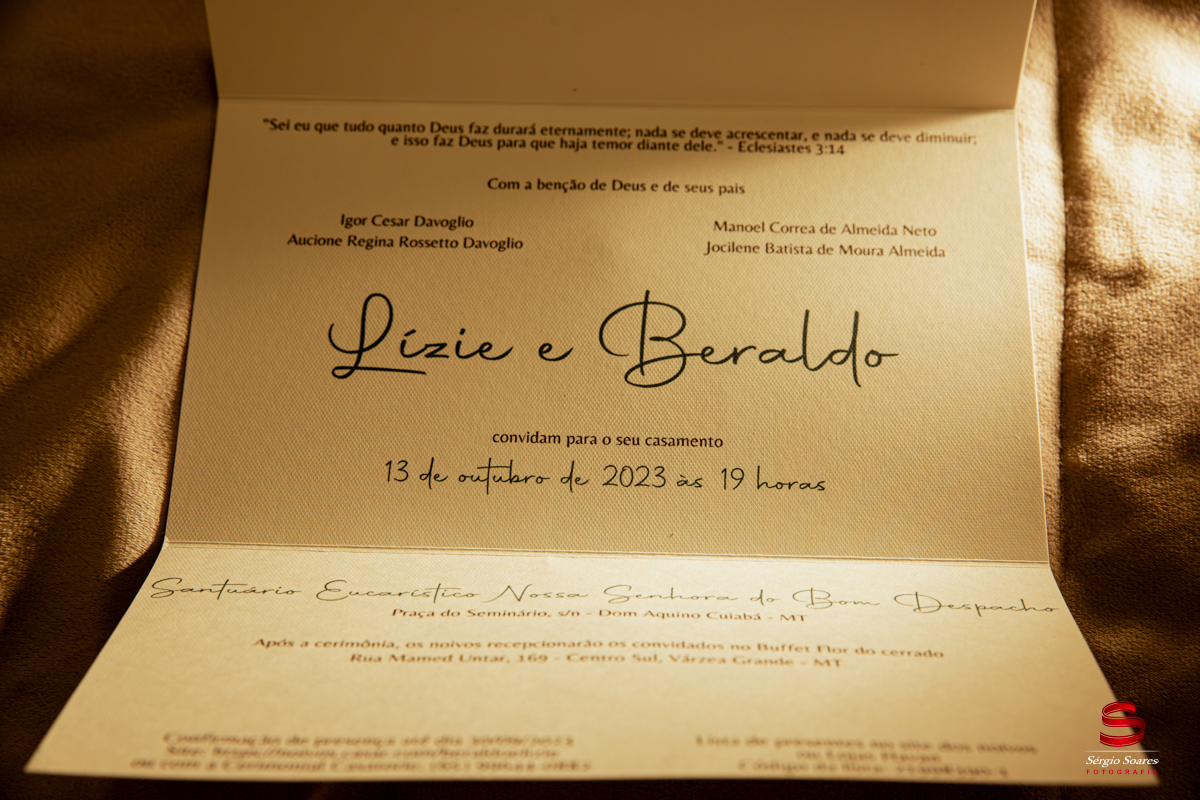 "Sei eu que tudo quanto Deus faz durará eternamente; nada se deve acrescentar, e nada se deve diminuir;
e isso faz Deus para que haja temor diante dele." - Eclesiastes 3:14
Com a benção de Deus e de seus pais
Igor Cesar Davoglio
Aucione Regina Rossetto Davoglio
Manoel Correa de Almeida Neto
Jocilene Batista de Moura Almeida
Lízie e Beraldo
convidam para o seu casamento
13 de outubro de 2023 às 19 horas
Santuário Eucarístico Nossa Senhora do Bom Despacho
Praça do Seminário, s/n - Dom Aquino Cuiabá - MT
Após a cerimônia, os noivos recepcionarão os convidados no Buffet Flor do cerrado
Rua Mamed Untar, 169 - Centro Sul, Várzea Grande - MT
Confirmação de presença até dia
ou com a Cerimonial
Lista de presentes no site dos noivos
Sérgio Soares
FOTOGRAFIA